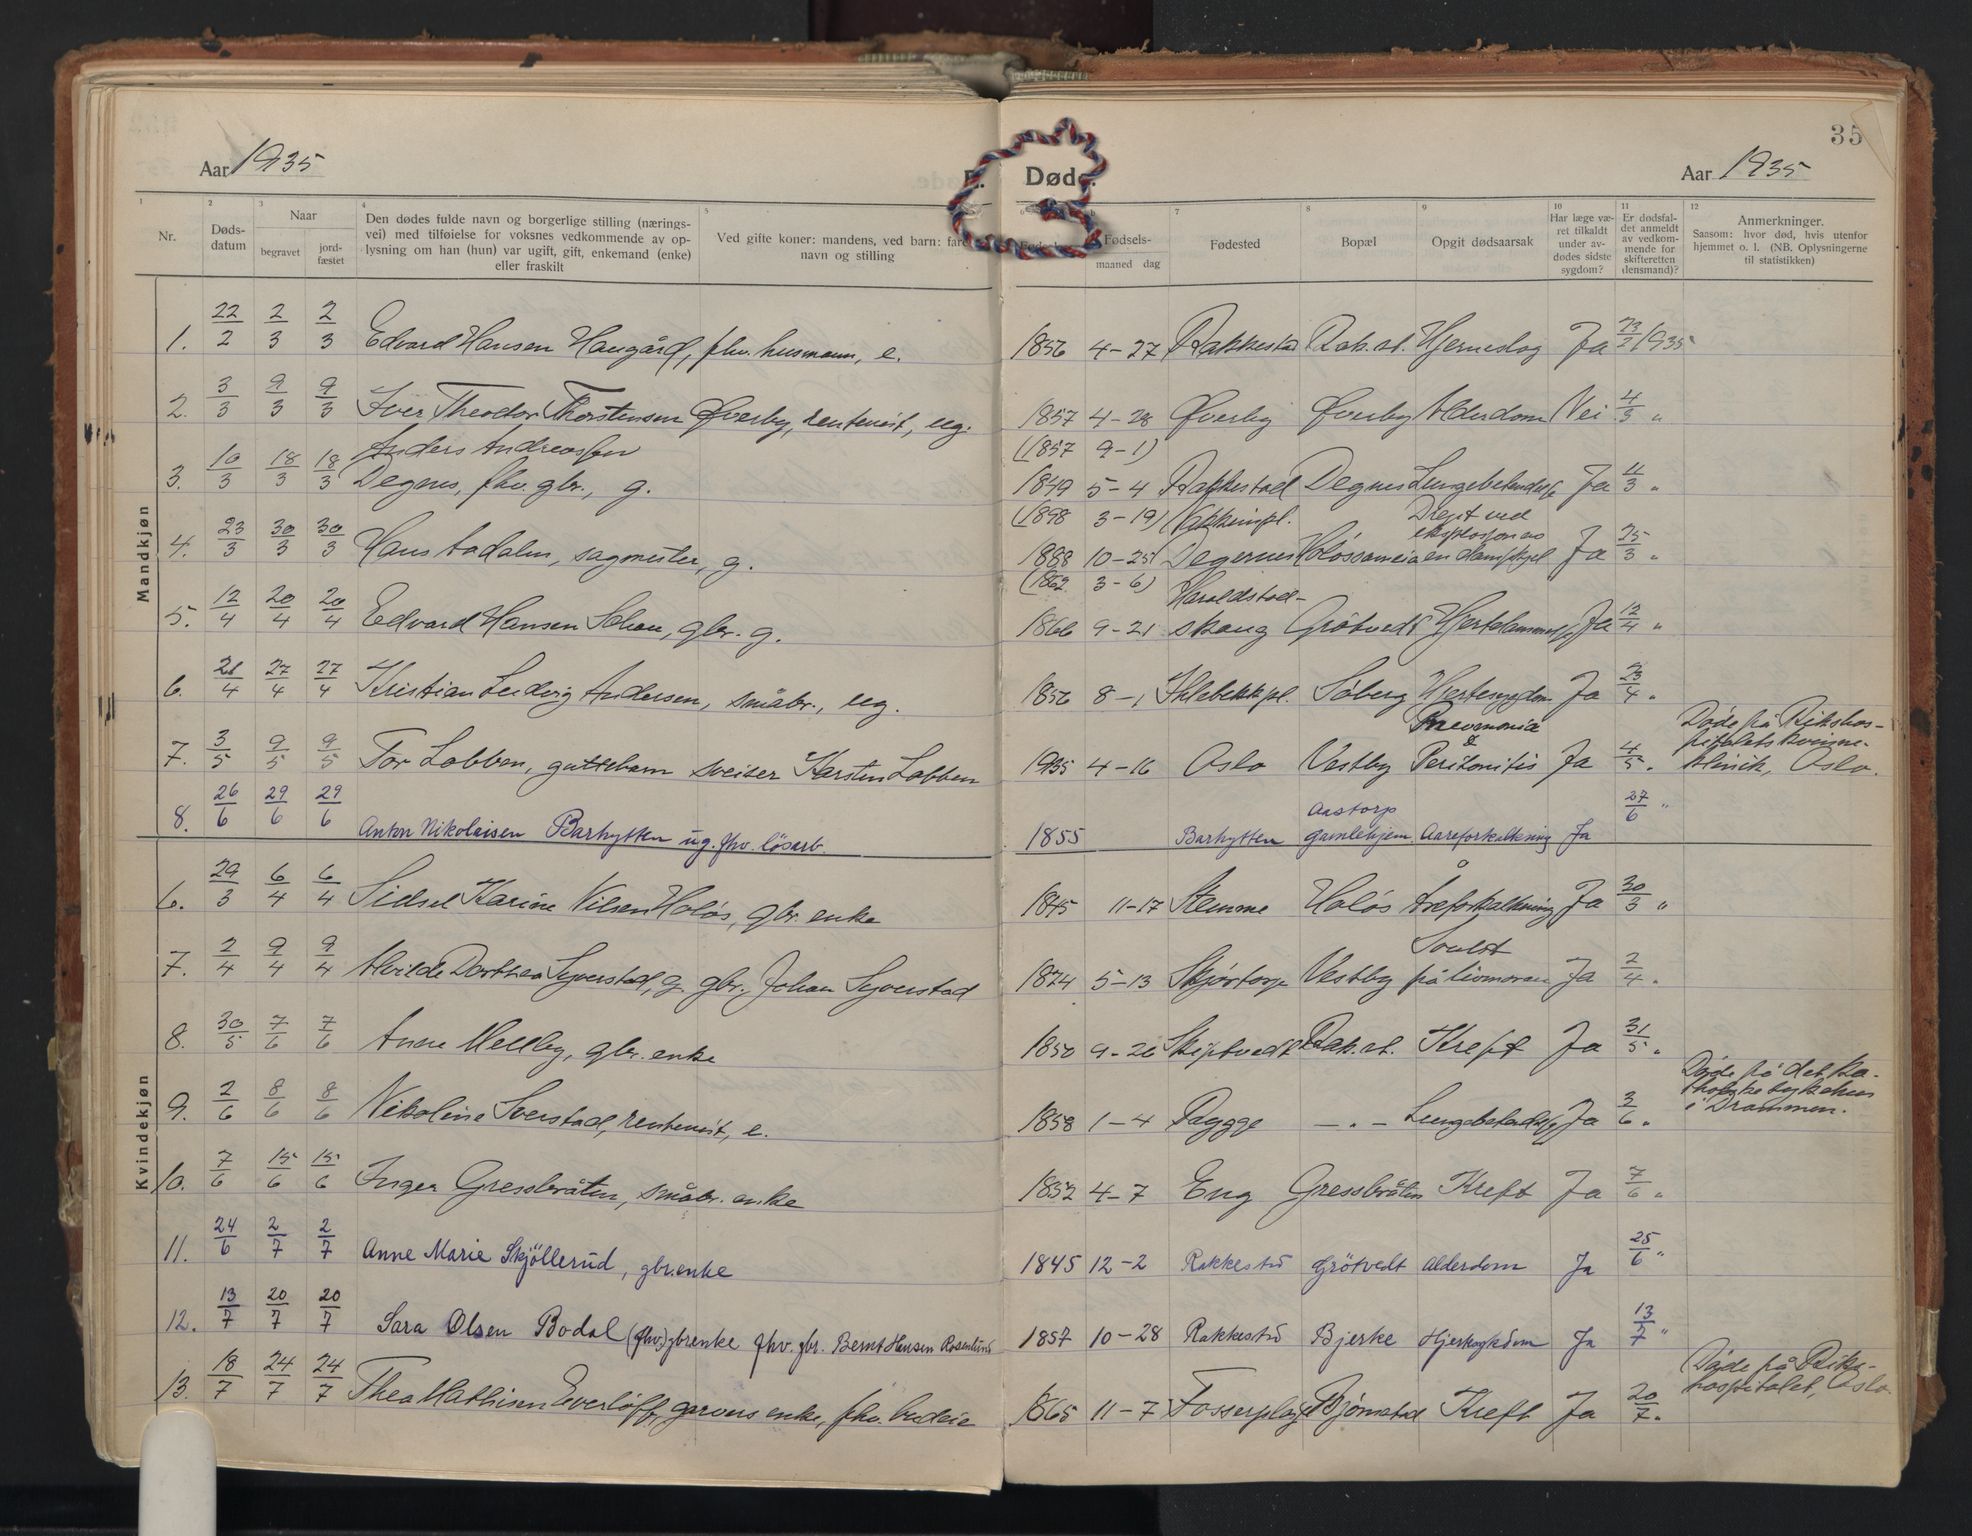 35
Aar 1935
Døde.
Aar 1935
1 2 3 4 5 7 8 9 10 11 12
Nr.
Døds-
datum
Naar
begravet
jord-
fæstet
Den dødes fulde navn og borgerlige stilling (nærings-
vei) med tilføielse for voksnes vedkommende av op-
lysning om han (hun) var ugift, gift, enkemand (enke)
eller fraskilt
Ved gifte koner: mandens, ved barn: fare
navn og stilling
Fødsels-
maaned dag
Fødested
Bopæl
Opgit dødsaarsak
Har læge væ-
ret tilkaldt
under av-
dødes sidste
sygdom?
Er dødsfal-
det anmeldt
av vedkom-
mende for
skifteretten
(lensmand)?
Anmerkninger.
Saasom: hvor død, hvis utenfor
hjemmet o. l. (NB. Oplysningerne
til statistikken)
Mandkjøn
1. 22/2 2/3 2/3 Edvard Hansen Haugård, fhv. husmann, e. 1856 4-27 Rakkestad Rak.st. Hjerneslag Ja 23/2 1935
2. 3/3 9/3 9/3 Iver Theodor Thorstensen Øverby, rentenist, ug. 1857 4-28 Øverby Øverby Alderdom Nei 4/3 "
Anders Andreassen (1857 9-1)
3. 10/3 18/3 18/3 Degnes, fhv. gbr., g. 1849 5-4 Rakkestad Degnes Lungebetendelse Ja 4/3 "
(1898 3-19) Drept ved
eksplosjon av
4. 23/3 30/3 30/3 Hans Aadalen, sagmester, g. 1888 10-25 Degernes en dampkjel Ja 25/3 "
(1862 3-6) Haraldstad-
5. 12/4 20/4 20/4 Edvard Hansen g. 1866 9-21 skaug Grøtvedt Ja 12/4 "
6. 21/4 27/4 27/4 Kristian Ludvig Andersen, småbr., ug. 1856 8-1 Søberg Hjertesygdom Ja 23/4 "
Pneomonia
&
Døde på Rikshos-
pitalets kvinne-
klinik, Oslo.
7. 3/5 9/5 9/5 Tor Lobben, guttebarn sveiser Karsten Lobben 1935 4-16 Oslo Vestby Peritonitis Ja 4/5 "
Aastorp
8. 26/6 29/6 29/6 Anton Nikolaisen Barhytten ug. fhv. løsarb. 1855 Barhytten gamlehjem. Aareforkalkning Ja 27/6 "
Kvindekjøn
6. 29/3 6/4 6/4 Sidsel Karine Nilsen Holøs, gbr. enke 1845 11-17 Stemme Holøs Åreforkalkning Ja 30/3 "
Svulst
7. 2/4 9/4 9/4 Alvilde Dorthea Syverstad, g. gbr. Johan Syverstad 1874 5-13 Skjørtorp Vestby på livmoren Ja 2/4 "
8. 30/5 7/6 7/6 Anne Melleby, gbr. enke 1850 9-26 Skiptvedt Rak.st. Kreft Ja 31/5 "
Døde på det ka-
tholske sykehus
i Drammen.
9. 2/6 8/6 8/6 Nikoline Sverstad, rentenist, e. 1858 1-4 Rygge — " — Lungebetendelse Ja 3/6 "
10. 7/6 15/6 15/6 Inger Gressbråten, småbr. enke 1852 4-7 Eng Gressbråten Kreft Ja 7/6 "
11. 24/6 2/7 2/7 Anne Marie Skjöllerud, gbr.enke 1845 12-2 Rakkestd Grötvedt Alderdom Ja 25/6 "
12. 13/7 20/7 20/7 Sara Olsen Bodal (fhv.) gbrenke fhv. gbr. Bernt Hansen Rosenlund 1857 10-28 Rakkestd Bjerke Ja 13/7 "
Døde på Riks-
hospitalet, Oslo
13. 18/7 24/7 24/7 Thea Mathisen Everløff, garvers enke, fhv. budeie 1865 11-7 Bjørnstad Kreft Ja 20/7 "